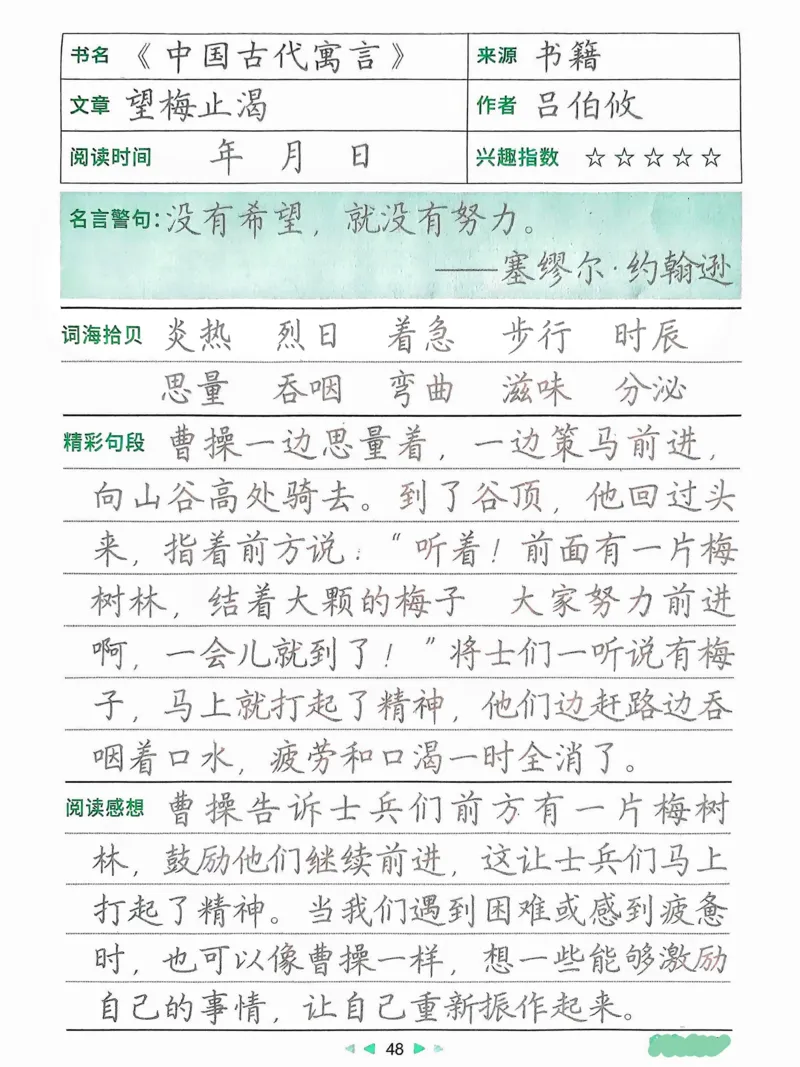 书名 《中国古代寓言》 来源 书籍
文章 望梅止渴 作者 吕伯攸
阅读时间 年 月 日 兴趣指数 ☆☆☆☆☆
名言警句：没有希望，就没有努力。
——塞缪尔·约翰逊
词海拾贝 炎热 烈日 着急 步行 时辰
思量 吞咽 弯曲 滋味 分泌
精彩句段 曹操一边思量着，一边策马前进，
向山谷高处骑去。到了谷顶，他回过头
来，指着前方说：“听着！前面有一片梅
树林，结着大颗的梅子 大家努力前进
啊，一会儿就到了！”将士们一听说有梅
子，马上就打起了精神，他们边赶路边吞
咽着口水，疲劳和口渴一时全消了。
阅读感想 曹操告诉士兵们前方有一片梅树
林，鼓励他们继续前进，这让士兵们马上
打起了精神。当我们遇到困难或感到疲惫
时，也可以像曹操一样，想一些能够激励
自己的事情，让自己重新振作起来。
48